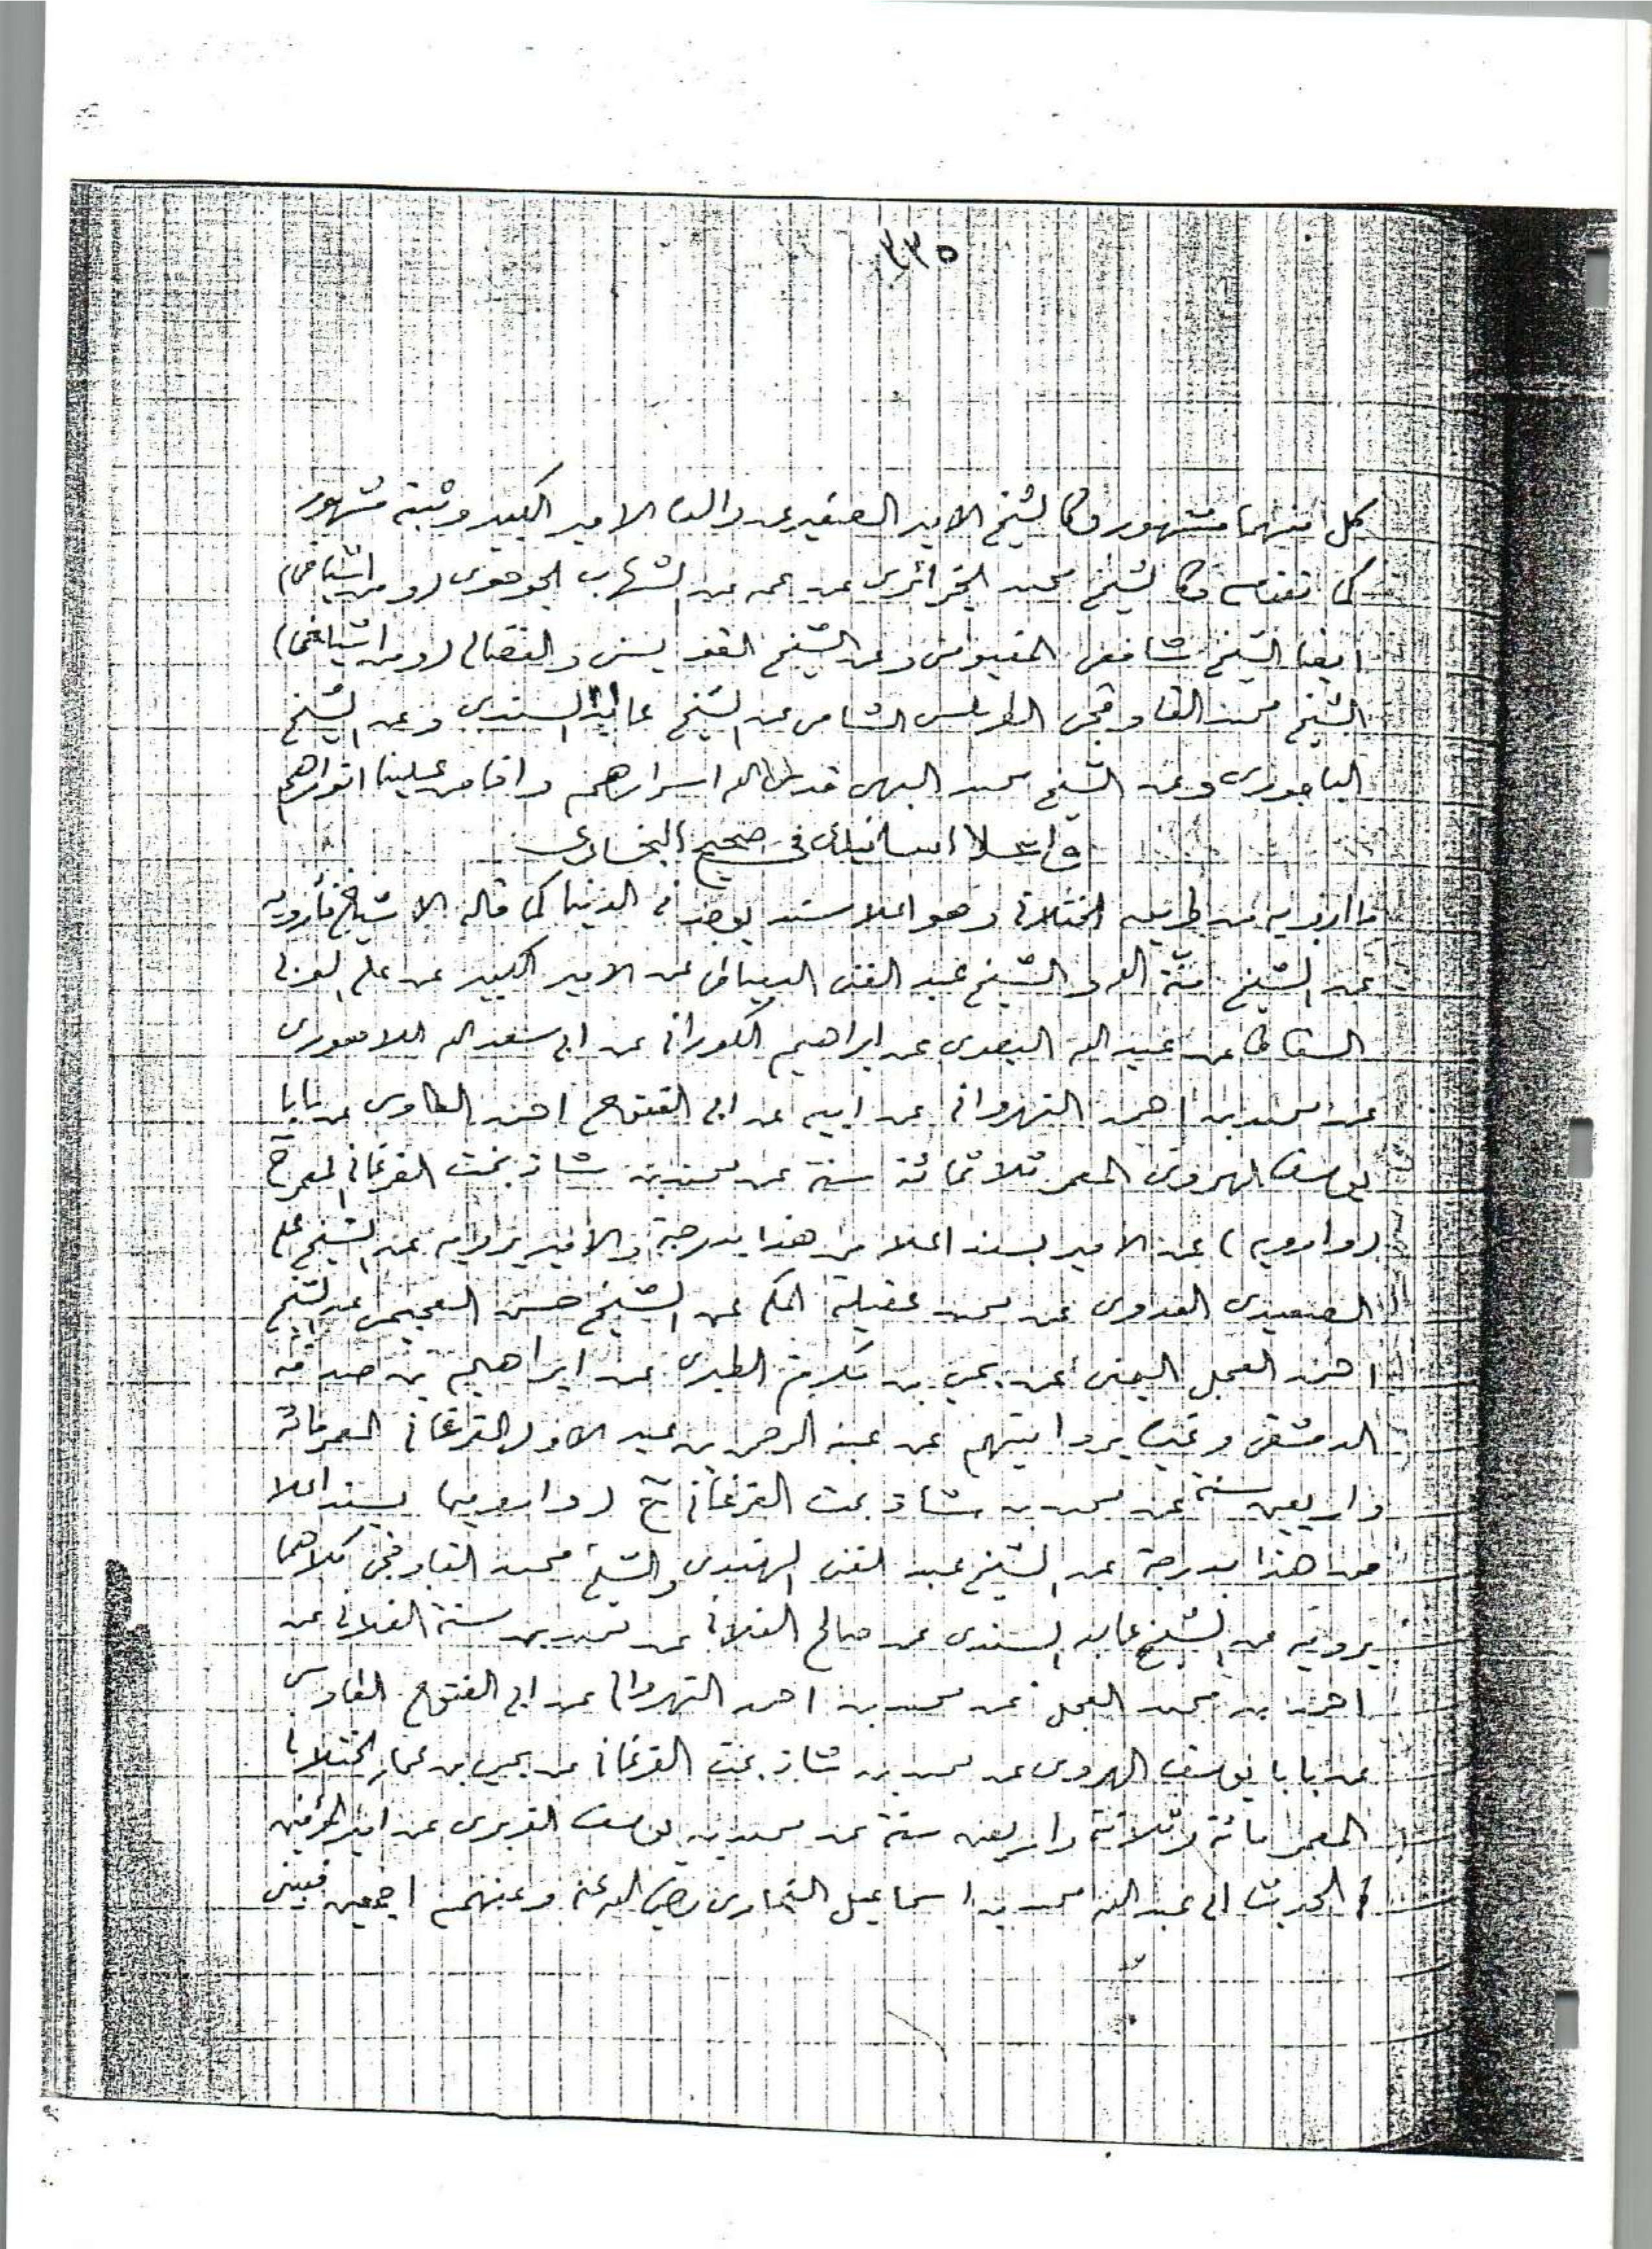 ٣٣٥
كل منهما مشهور وكالشيخ الامير الصغير عن والده الامير الكبير وثبته مشهور
كما تقدم وكالشيخ محمد الجزائرى عن عمه عن الشهاب الجوهرى (ومن اشياخى)
ايضا الشيخ شافعى الفيومى وعن الشيخ القويسنى والفضالى (ومن اشياخى)
الشيخ محمد القاوقجى الطرابلسى الشامى عن الشيخ عابد السندى وعن الشيخ
الباجورى وعن الشيخ محمد البهى قدس الله اسرارهم وافاض علينا انوارهم
واعلا اسانيدى فى صحيح البخارى
ما ارويه من طريق الختلانى وهو اعلا سند يوجد فى الدنيا كما قاله الاشياخ فأرويه
عن الشيخ منة الله والشيخ عبد الغنى الدمياطى عن الامير الكبير عن على العربى
السقاط عن عبد الله البصرى عن ابراهيم الكورانى عن ابى سعد الله اللاهورى
عن محمد بن احمد النهروانى عن ابيه عن ابى الفتوح احمد الطاوسى عن بابا
يوسف الهروى المعمر ثلاثمائة سنة عن محمد بن شاذ بخت الفرغانى المعمر ح
(وارويه) عن الامير بسند اعلا من هذا بدرجة والامير يرويه عن الشيخ على
الصعيدى العدوى عن محمد عقيلة المكى عن الشيخ حسن العجيمى عن الشيخ
احمد العجل اليمنى عن يحيى بن مكرم الطبرى عن ابراهيم بن صدقة
الدمشقى وغيره بروايتهم عن عبد الرحمن بن عبد الاول الفرغانى المعمر مائة
واربعين سنة عن محمد بن شاذ بخت الفرغانى ح (وارويه) بسند اعلا
من هذا بدرجة عن الشيخ عبد الغنى الهندى والشيخ محمد القاوقجى كلاهما
يرويه عن الشيخ عابد السندى عن صالح الفلانى عن محمد بن سنة الفلانى عن
احمد بن محمد العجل عن محمد بن احمد النهروانى عن ابى الفتوح الطاوسى
عن بابا يوسف الهروى عن محمد بن شاذ بخت الفرغانى عن يحيى بن عمار الختلانى
المعمر مائة وثلاثة واربعين سنة عن محمد بن يوسف الفربرى عن امير المؤمنين
فى الحديث ابى عبد الله محمد بن اسماعيل البخارى رضى الله عنه وعنهم اجمعين فبينى